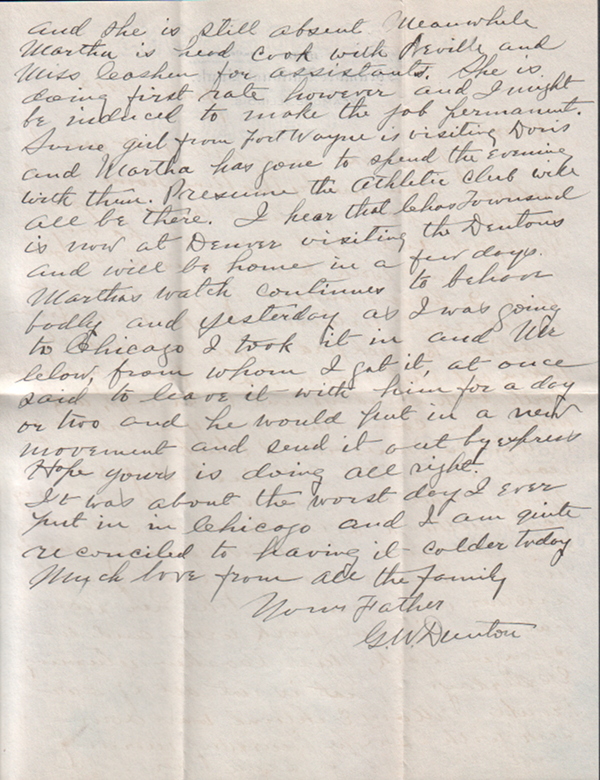 and she is still absent. Meanwhile
Martha is head cook with Neville and
Miss Coshun for assistants. She is
doing first rate however and I might
be induced to make the job permanent.
Some girl from Fort Wayne is visiting Doris
and Martha has gone to spend the evening
with them. Presume the Athletic Club will
all be there. I hear that Chas Townsend
is now at Denver visiting the Dentons
and will be home in a few days.
Marthas watch continues to behave
badly and yesterday as I was going
to Chicago I took it in and Mr
from whom I got it, at once
said to leave it with him for a day
or two and he would put in a new
movement and send it out by express
Hope yours is doing all right.
It was about the worst day I ever
put in in Chicago and I am quite
reconciled to having it colder today
Much love from all the family
Your Father
G.W. Dunton